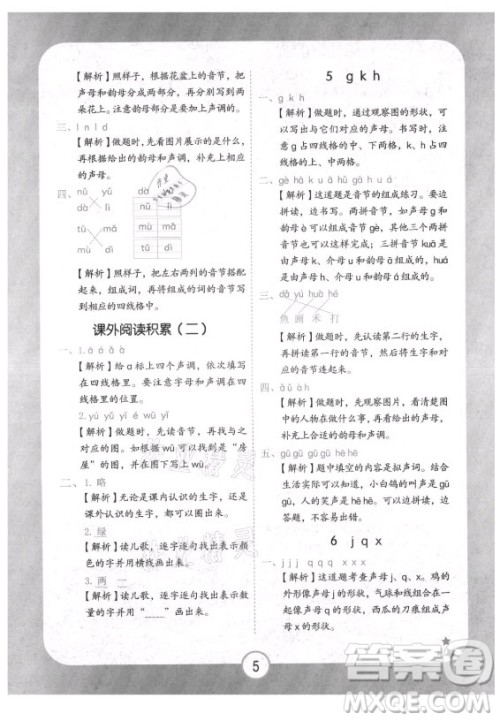 【解析】照样子，根据花盆上的音节，
把声母和韵母的音节分开，写到两
朵花上。注意韵母部分有声调的。
三、l n l d
【解析】做题时，先看图片展示的是什么，
再根据给出的韵母和声调，补充上相应
的声母。
四、nǔ yú dà
dà nǔ lì
mù mù mǎ
tǔ dì tǔ dì
【解析】照样子，把左右两列的音节搭配
起来，组成词语，将组成的词的音节写
到相应的四线格中。
课外阅读积累（二）
一、1.ā á ǎ à
【解析】给 a 标上四个声调，根据规则写
在四线格里。要注意字母和声调在四线
格里的位置。
2.yú yǔ wū yī
【解析】做题时，先读音节，再找与之
对应的图。根据 wū 可以找到是“房
屋”的图，其他以此类推。
二、1. 略
【解析】无论是课内认识的生字，还是课
外认识的生字，都可以圈出来。
2. 绿
【解析】读儿歌，逐字逐句找出表示颜
色的字并用横线画出来。
3. 两 二
【解析】读儿歌，逐字逐句找出表示数
量的字并用“﹏﹏”画出来。
5 g k h
一、g k h
【解析】做题时，通过观察图的形状，可
以判断出对应的声母。书写时，注
意 g 占四线格的中、下两格，k、h 占四线格
的上、中两格。
二、gè hà kuǎ uā huā
【解析】这道题是音节的组成练习。要边
拼读，边填写。两拼音节，如声母 g 和
韵母 è 组成音节 gè。其他三个两拼音
节也可以依次完成；三拼音节 kuǎ 是
由声母 k、介母 u 和韵母 ǎ 组成的；huā
是由声母 h、介母 u 和韵母 ā 组成的。
三、dǎ yú huà hé
鱼 画 禾 打
【解析】做题时，先认读第二行的生字，
再根据生字的音节，把对应的生字和音
节连起来。
四、
【解析】做题时，先观察图片，看清楚图
中的人物在做什么事，再看给出的声母，
补充出合适的韵母和声调。
五、gū gū gǔ gǔ hē hē
【解析】题中填空的内容是拟声词。结合
生活实际可以知道，小白鸽的叫声是 gū
gū，人的笑声是 hē hē。其他以此类推得
出答案。
6 j q x
一、j j j q q q x x x
【解析】这道题考查声母 j、q、x。鸡的
外形像声母 j 的形状，气球和线组合在
一起像声母 q 的形状，西瓜的刀痕组成声
母 x 的形状。
5
答案圈
MXQE.COM